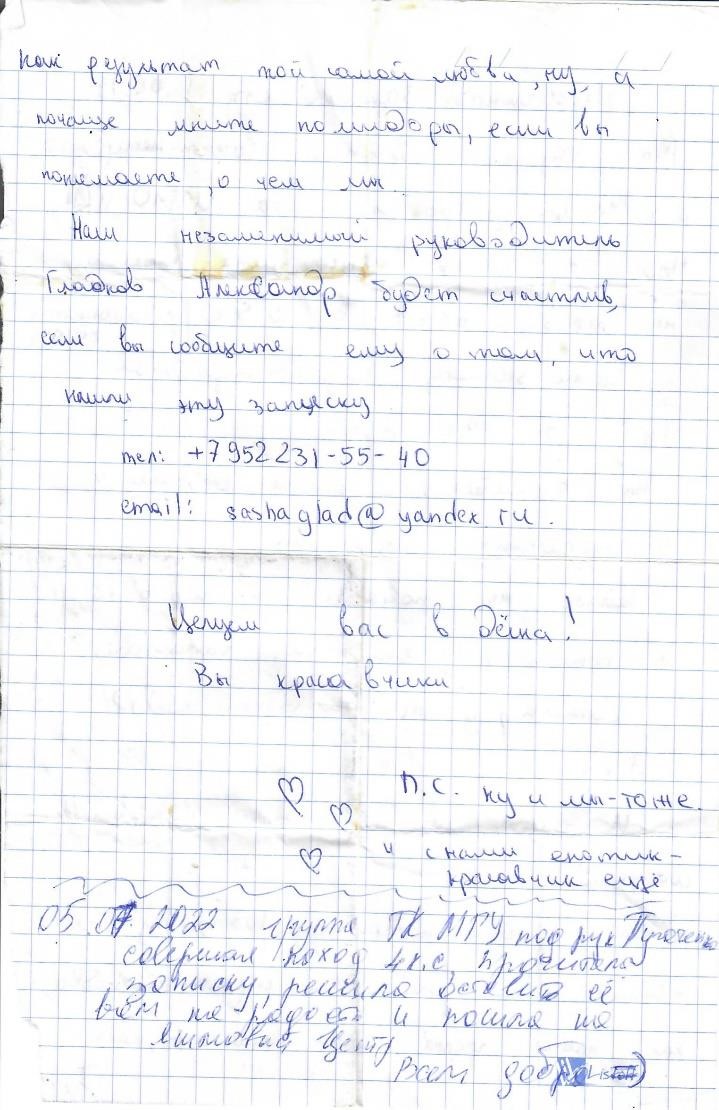 как результат той самой любви, ну, а
почаще мните помидоры, если вы
понимаете, о чем мы.
Наш незаменимый руководитель
Гладков Александр будет счастлив,
если вы сообщите ему о том, что
нашли эту записку
тел: +7 952 231-55-40
email: sashaglad@yandex.ru.
Целуем вас в дёсна!
Вы красавчики
П.С. ну и мы-тоже.
и с нами енотик-
красавчик ещё
05.07.2022 группа ТК МГУ под рук
совершая поход 4 к.с. прочитала
записку, решила оставить её
всем на радость и пошла на
Центр
Всем добра